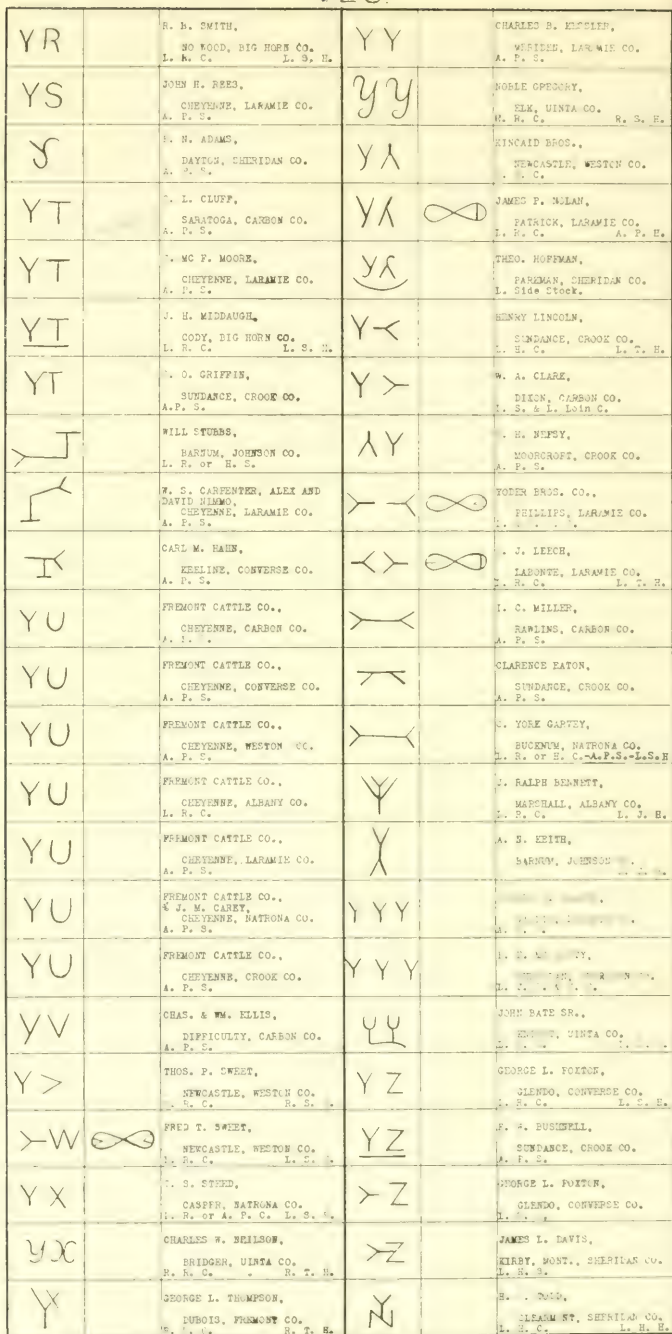 YR
R. B. SMITH,
NO WOOD, BIG HORN CO.
L. R. C. L. S. H.
YS
JOHN H. REES,
CHEYENNE, LARAMIE CO.
A. P. S.
N. ADAMS,
DAYTON, SHERIDAN CO.
A. P. S.
YT
L. CLUFF,
SARATOGA, CARBON CO.
A. P. S.
YT
MC F. MOORE,
CHEYENNE, LARAMIE CO.
A. P. S.
YT
J. H. MIDDAUGH,
CODY, BIG HORN CO.
L. R. C. L. S. H.
YT
O. GRIFFIN,
SUNDANCE, CROOK CO.
A.P. S.
WILL STUBBS,
BARNUM, JOHNSON CO.
L. R. or H. S.
W. S. CARPENTER, ALEX AND
DAVID NIMMO,
CHEYENNE, LARAMIE CO.
A. P. S.
CARL M. HAHN,
KEELINE, CONVERSE CO.
A. P. S.
YU
FREMONT CATTLE CO.,
CHEYENNE, CARBON CO.
YU
FREMONT CATTLE CO.,
CHEYENNE, CONVERSE CO.
A. P. S.
YU
FREMONT CATTLE CO.,
CHEYENNE, WESTON CO.
A. P. S.
YU
FREMONT CATTLE CO.,
CHEYENNE, ALBANY CO.
L. R. C.
YU
FREMONT CATTLE CO.,
CHEYENNE, LARAMIE CO.
A. P. S.
YU
FREMONT CATTLE CO.,
& J. M. CAREY,
CHEYENNE, NATRONA CO.
A. P. S.
YU
FREMONT CATTLE CO.,
CHEYENNE, CROOK CO.
A. P. S.
YV
CHAS. & WM. ELLIS,
DIFFICULTY, CARBON CO.
A. P. S.
Y >
THOS. P. SWEET,
NEWCASTLE, WESTON CO.
R. C. R. S.
W
FRED T. SWEET,
NEWCASTLE, WESTON CO.
R. C. L. S.
YX
S. STEED,
CASPER, NATRONA CO.
R. or A. P. C. L. S.
YX
CHARLES W. NEILSON,
BRIDGER, UINTA CO.
R. R. C. R. T. H.
GEORGE L. THOMPSON,
DUBOIS, FREMONT CO.
R. T. H.
YY
CHARLES B. KESSLER,
MERIDEN, LARAMIE CO.
A. P. S.
YY
NOBLE GREGORY,
ELK, UINTA CO.
R. R. C. R. S. H.
Y
KINCAID BROS.,
NEWCASTLE, WESTON CO.
C.
Y
JAMES P. NOLAN,
PATRICK, LARAMIE CO.
L. R. C. A. P. H.
THEO. HOFFMAN,
PARKMAN, SHERIDAN CO.
L. Side Stock.
Y
HENRY LINCOLN,
SUNDANCE, CROOK CO.
L. H. C. L. T. H.
Y
W. A. CLARK,
DIXON, CARBON CO.
L. S. & L. Loin C.
Y
H. NEFSY,
MOORCROFT, CROOK CO.
A. P. S.
YODER BROS. CO.,
PHILLIPS, LARAMIE CO.
J. LEECH,
LABONTE, LARAMIE CO.
R. C. L. T. H.
I. C. MILLER,
RAWLINS, CARBON CO.
A. P. S.
CLARENCE EATON,
SUNDANCE, CROOK CO.
A. P. S.
YORK GARVEY,
BUCKNUM, NATRONA CO.
L. R. or H. C.-A.P.S.-L.S.H
J. RALPH BENNETT,
MARSHALL, ALBANY CO.
L. R. C. L. J. H.
A. N. KEITH,
BARNUM, JOHNSON
YYY
YYY
JOHN BATE SR.,
UINTA CO.
YZ
GEORGE L. FOXTON,
GLENDO, CONVERSE CO.
L. R. C. L. S. H.
YZ
BUSHNELL,
SUNDANCE, CROOK CO.
A. P. S.
Z
GEORGE L. FOXTON,
GLENDO, CONVERSE CO.
JAMES L. DAVIS,
KIRBY, MONT., SHERIDAN CO.
L. H. S.
SHERIDAN CO.
L. H. C. L. H. H.